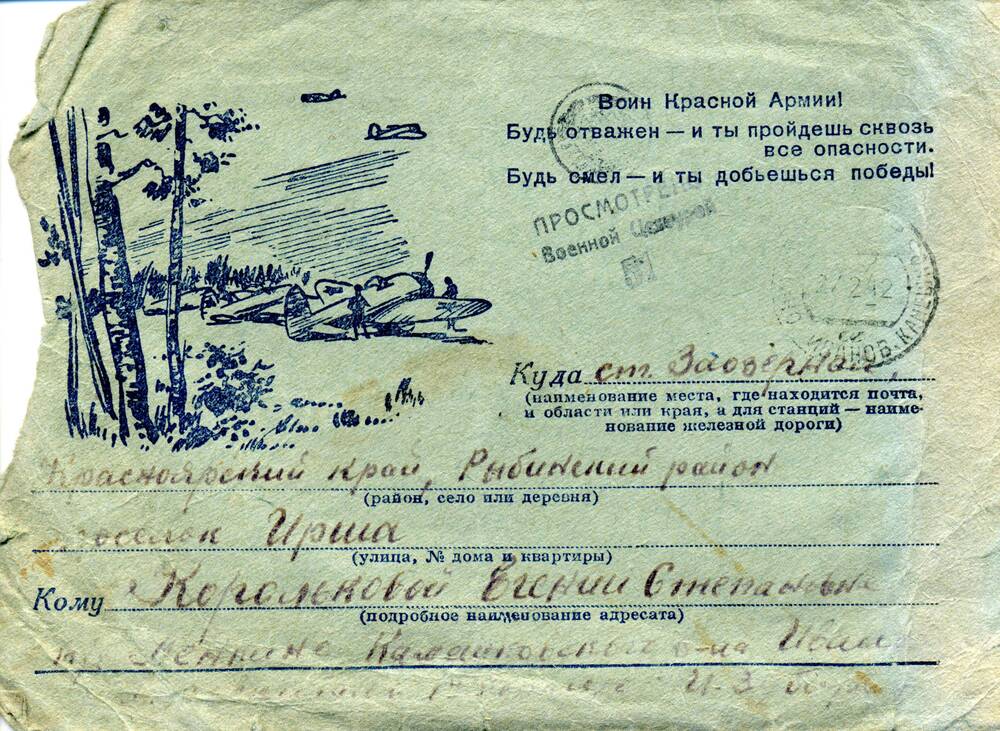 Воин Красной Армии!
Будь отважен — и ты пройдешь сквозь
все опасности.
Будь смел — и ты добьешься победы!
ПРОСМОТРЕНО
Военной Цензурой
27 2 42
Куда ст. Заозерная,
(наименование места, где находится почта,
и области или края, а для станций — наиме-
нование железной дороги)
Красноярский край, Рыбинский район
(район, село или деревня)
поселок Ирша
(улица, № дома и квартиры)
Кому Корольковой Евгении Степановне
(подробное наименование адресата)
Ивано